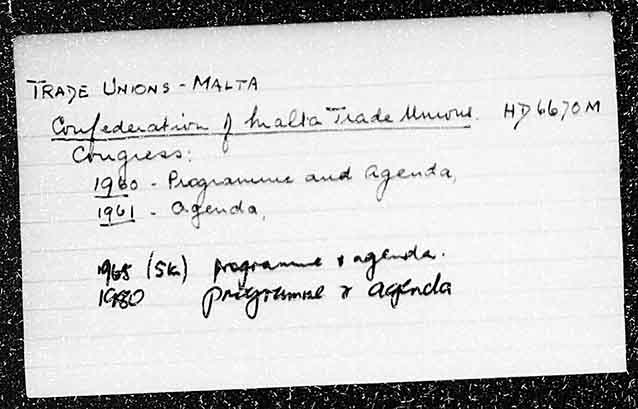 TRADE UNIONS - MALTA
Confederation of Malta Trade Unions. HD6670M
Congress:
1960 - Programme and Agenda,
1961 - Agenda,
1965 (5th) programme & agenda.
1980 programme & agenda